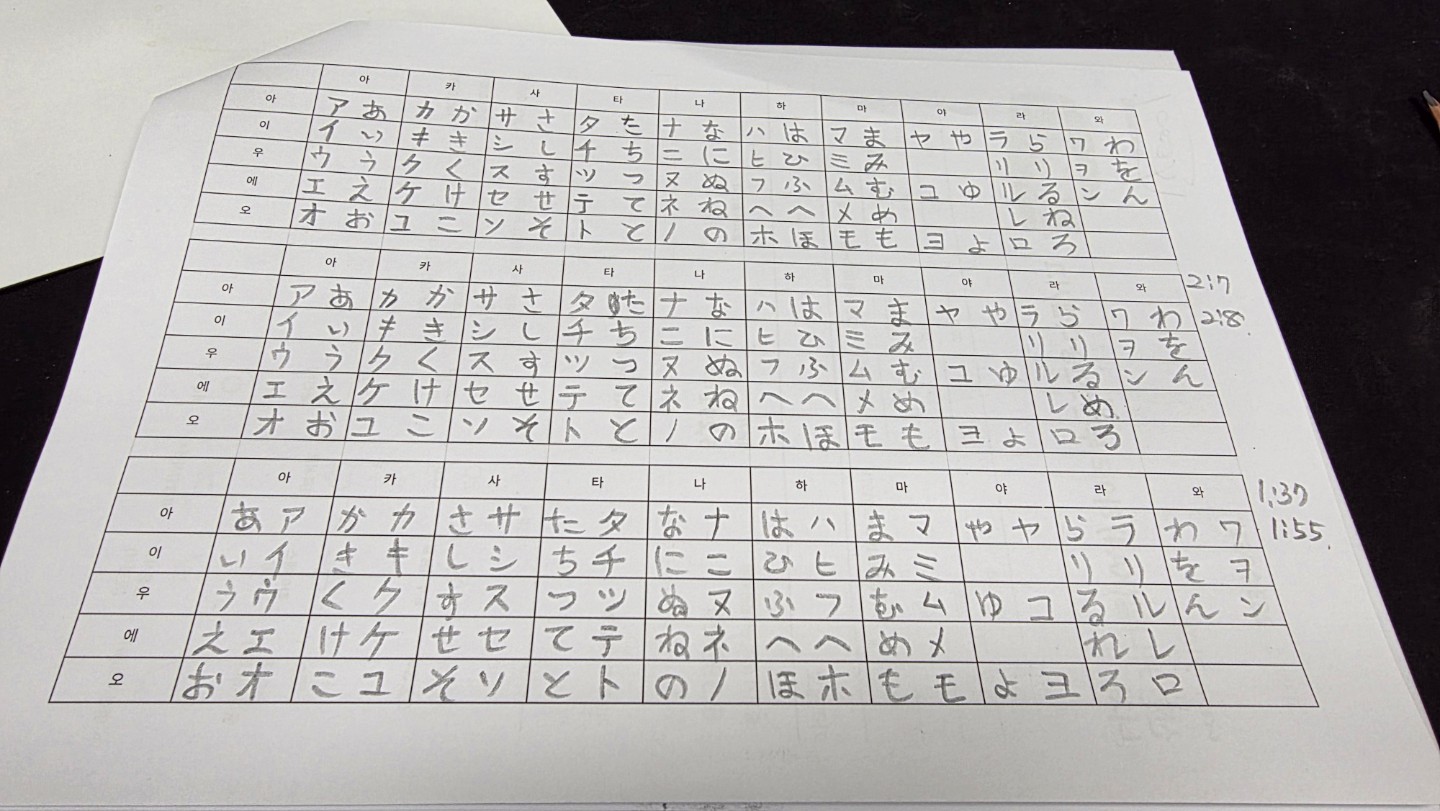 아 카 사 타 나 하 마 야 라 와
아 アあ カか サさ タた ナな ハは マま ヤや ラら ワわ
이 イい キき シし チち ニに ヒひ ミみ リり ヲを
우 ウう クく スす ツつ ヌぬ フふ ムむ ユゆ ルる ンん
에 エえ ケけ セせ テて ネね ヘへ メめ レね
오 オお コこ ソそ トと ノの ホほ モも ヨよ ロろ
아 카 사 타 나 하 마 야 라 와 2:17
아 アあ カか サさ タた ナな ハは マま ヤや ラら ワわ 2:8.
이 イい キき シし チち ニに ヒひ ミみ リり ヲを
우 ウう クく スす ツつ ヌぬ フふ ムむ ユゆ ルる ンん
에 エえ ケけ セせ テて ネね ヘへ メめ レめ
오 オお コこ ソそ トと ノの ホほ モも ヨよ ロろ
아 카 사 타 나 하 마 야 라 와 1:37
아 あア かカ さサ たタ なナ はハ まマ やヤ らラ わワ 1:55.
이 いイ きキ しシ ちチ にニ ひヒ みミ りリ をヲ
우 うウ くク すス つツ ぬヌ ふフ むム ゆユ るル んン
에 えエ けケ せセ てテ ねネ へヘ めメ れレ
오 おオ こコ そソ とト のノ ほホ もモ よヨ ろロ